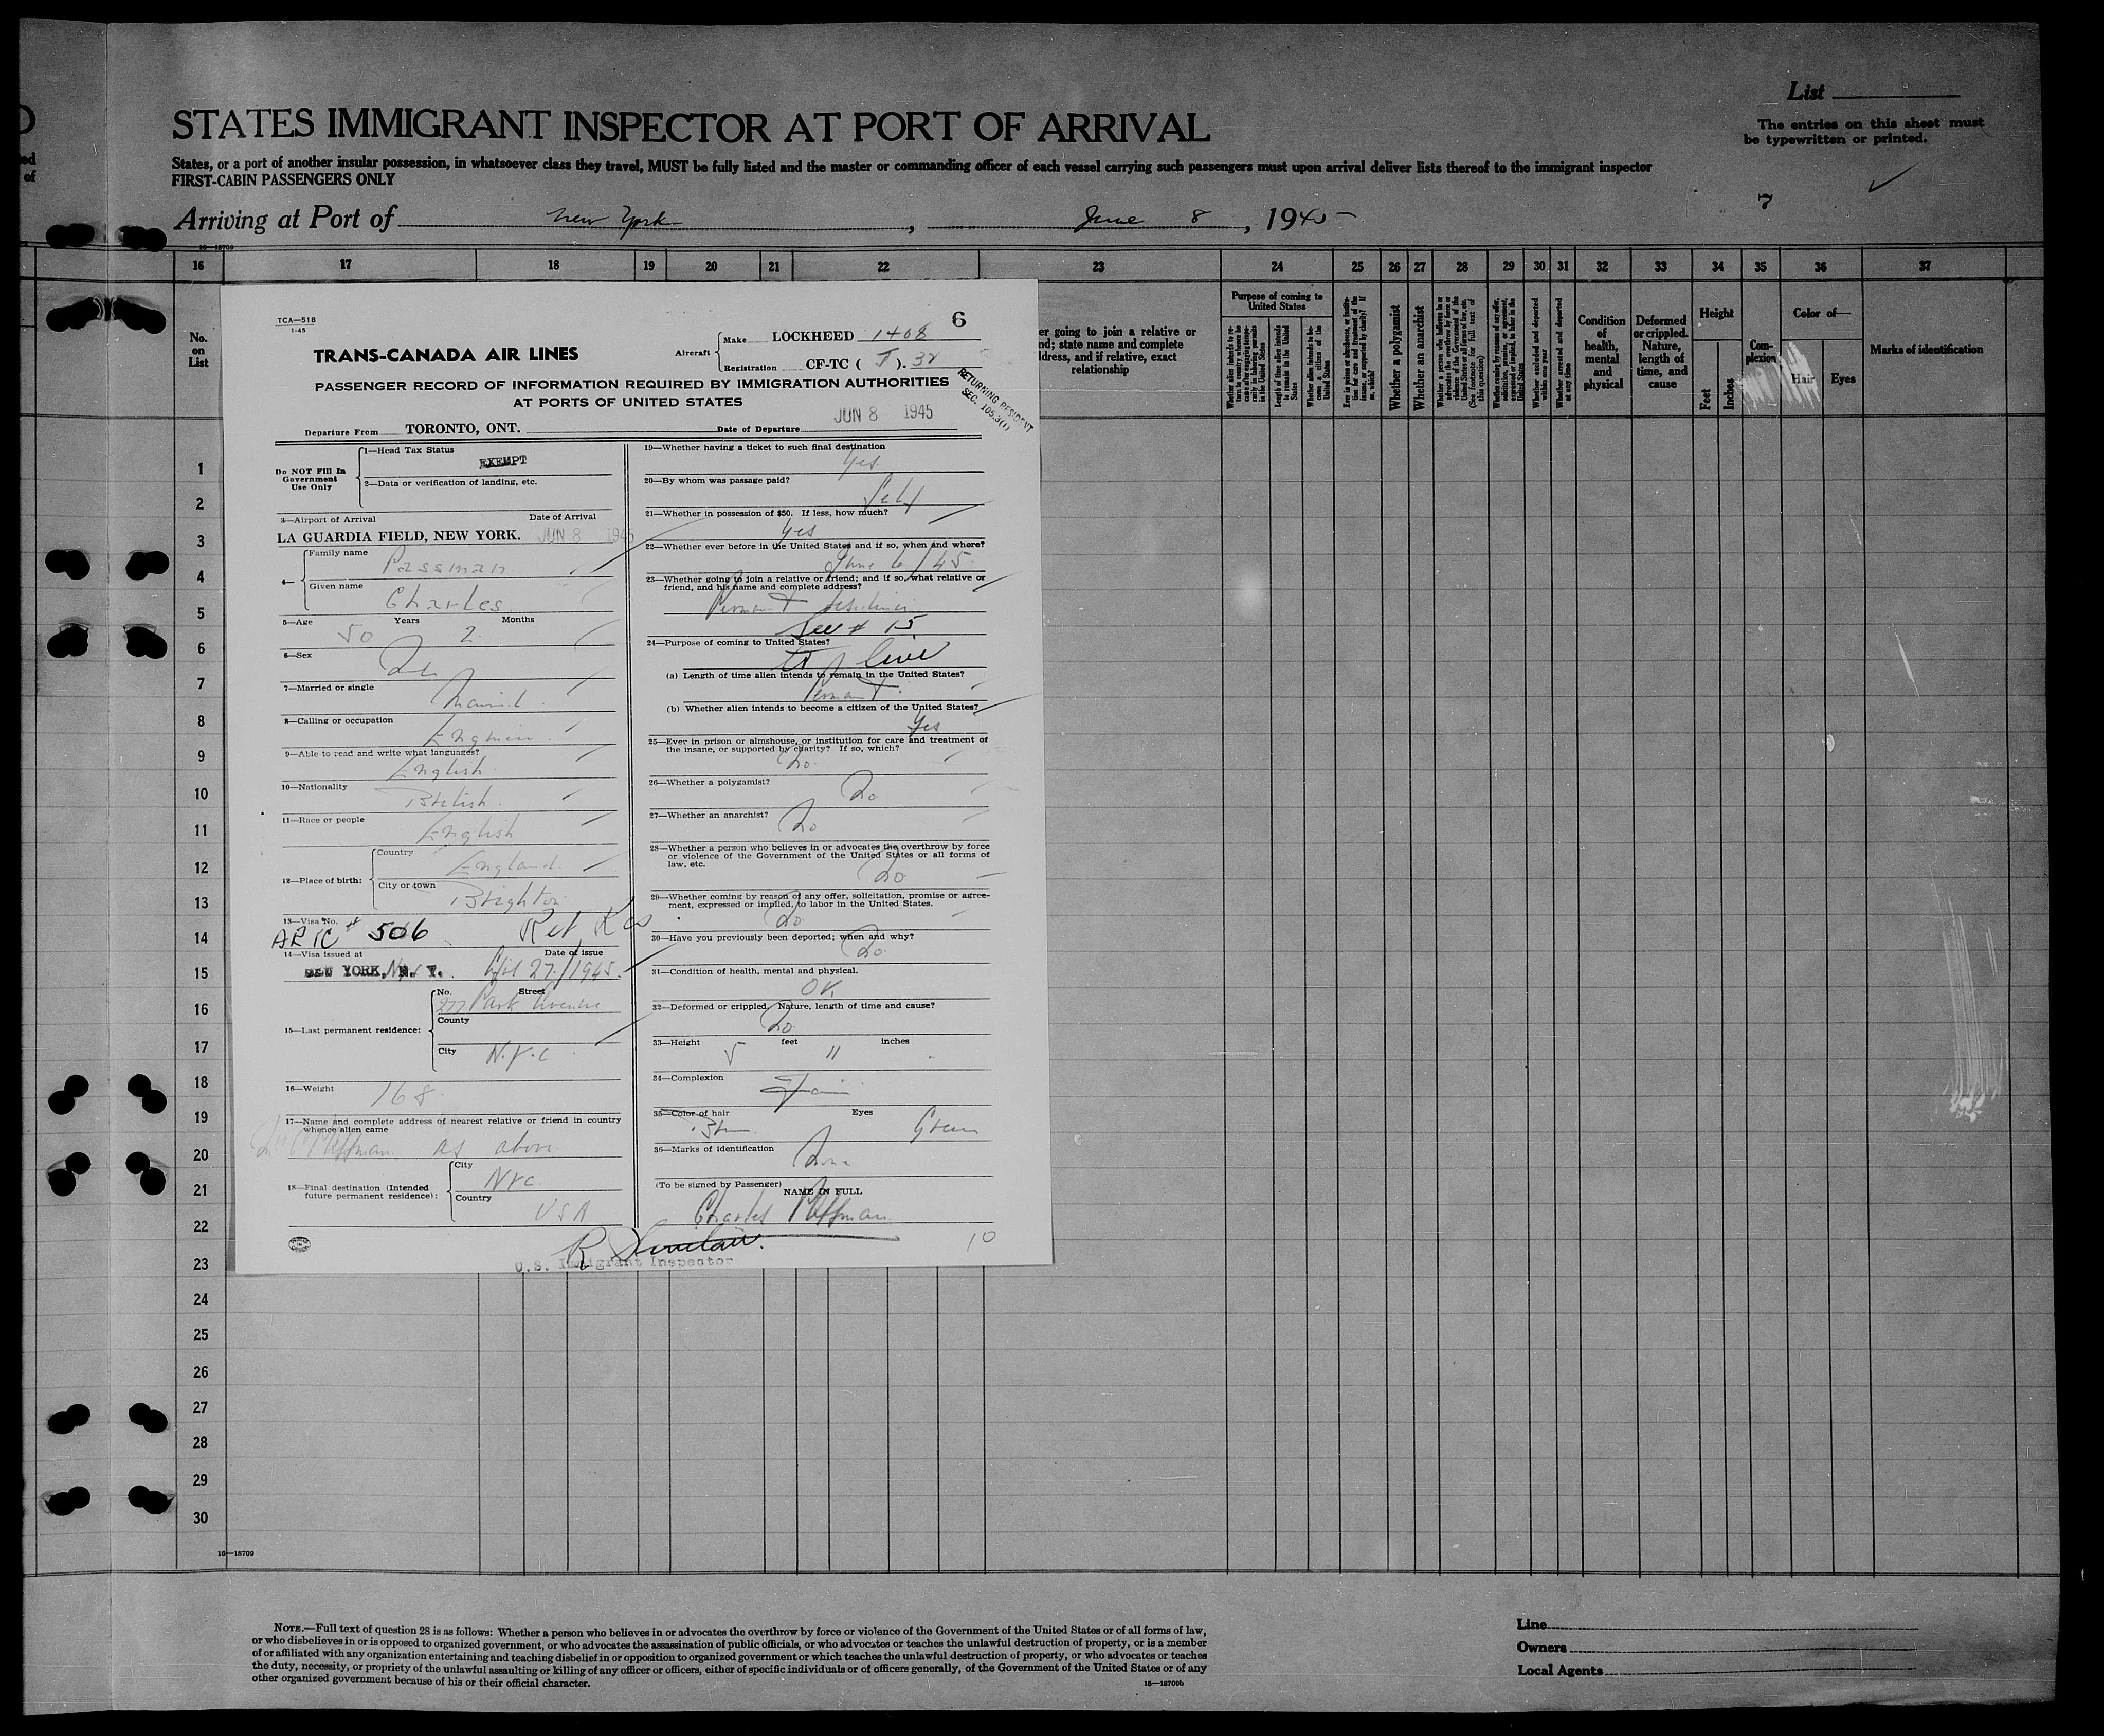 List
The entries on this sheet must
be typewritten or printed.
STATES IMMIGRANT INSPECTOR AT PORT OF ARRIVAL
States, or a port of another insular possession, in whatsoever class they travel, MUST be fully listed and the master or commanding officer of each vessel carrying such passengers must upon arrival deliver lists thereof to the immigrant inspector
FIRST-CABIN PASSENGERS ONLY
7
Arriving at Port of New York, June 8, 1945
16—18709
16 17 18 19 20 21 22 23 24 25 26 27 28 29 30 31 32 33 34 35 36 37
No.
on
List
er going to join a relative or
nd; state name and complete
ddress, and if relative, exact
relationship
Purpose of coming to
United States
Whether a polygamist
Whether an anarchist
Whether excluded and deported
within one year
Whether arrested and deported
at any time
Condition
of
health,
mental
and
physical
Deformed
or crippled.
Nature,
length of
time, and
cause
Height
Feet
Inches
Com-
plexion
Color of—
Hair
Eyes
Marks of identification
TCA—518
1-45
6
TRANS-CANADA AIR LINES
Aircraft
Make LOCKHEED 1408
Registration CF-TC ( J ). 32
PASSENGER RECORD OF INFORMATION REQUIRED BY IMMIGRATION AUTHORITIES
AT PORTS OF UNITED STATES
RETURNING RESIDENT
SEC. 105.3(1)
JUN 8 1945
Departure From TORONTO, ONT. Date of Departure
Do NOT Fill In
Government
Use Only
1—Head Tax Status
EXEMPT
2—Data or verification of landing, etc.
3—Airport of Arrival Date of Arrival
LA GUARDIA FIELD, NEW YORK. JUN 8 1945
4—
Family name
Passman
Given name
Charles
5—Age Years Months
50 2
6—Sex
7—Married or single
Married
8—Calling or occupation
9—Able to read and write what languages?
English
10—Nationality
British
11—Race or people
English
12—Place of birth:
Country
England
City or town
Brighton
13—Visa No.
# 506 Ret Res
14—Visa issued at Date of issue
NEW YORK, N. Y. 27/1945
15—Last permanent residence:
No. Street
277 Park Avenue
County
City N.Y.C
16—Weight
168
17—Name and complete address of nearest relative or friend in country
whence alien came
as above
18—Final destination (Intended
future permanent residence):
City
NYC
Country
USA
19—Whether having a ticket to such final destination
Yes
20—By whom was passage paid?
Self
21—Whether in possession of $50. If less, how much?
Yes
22—Whether ever before in the United States and if so, when and where?
June 6/45
23—Whether going to join a relative or friend; and if so, what relative or
friend, and his name and complete address?
See # 15
24—Purpose of coming to United States?
to live
(a) Length of time alien intends to remain in the United States?
(b) Whether alien intends to become a citizen of the United States?
Yes
25—Ever in prison or almshouse, or institution for care and treatment of
the insane, or supported by charity? If so, which?
No
26—Whether a polygamist?
No
27—Whether an anarchist?
No
28—Whether a person who believes in or advocates the overthrow by force
or violence of the Government of the United States or all forms of
law, etc.
No
29—Whether coming by reason of any offer, solicitation, promise or agree-
ment, expressed or implied, to labor in the United States.
No
30—Have you previously been deported; when and why?
No
31—Condition of health, mental and physical.
OK
32—Deformed or crippled. Nature, length of time and cause?
No
33—Height feet inches
5 11
34—Complexion
Fair
35—Color of hair Eyes
Green
36—Marks of identification
None
(To be signed by Passenger)
NAME IN FULL
Charles
R Sinclair.
U.S. Immigrant Inspector
10
1
2
3
4
5
6
7
8
9
10
11
12
13
14
15
16
17
18
19
20
21
22
23
24
25
26
27
28
29
30
16—18709
NOTE.—Full text of question 28 is as follows: Whether a person who believes in or advocates the overthrow by force or violence of the Government of the United States or of all forms of law,
or who disbelieves in or is opposed to organized government, or who advocates the assassination of public officials, or who advocates or teaches the unlawful destruction of property, or is a member
of or affiliated with any organization entertaining and teaching disbelief in or opposition to organized government or which teaches the unlawful destruction of property, or who advocates or teaches
the duty, necessity, or propriety of the unlawful assaulting or killing of any officer or officers, either of specific individuals or of officers generally, of the Government of the United States or of any
other organized government because of his or their official character.
16—18709b
Line
Owners
Local Agents